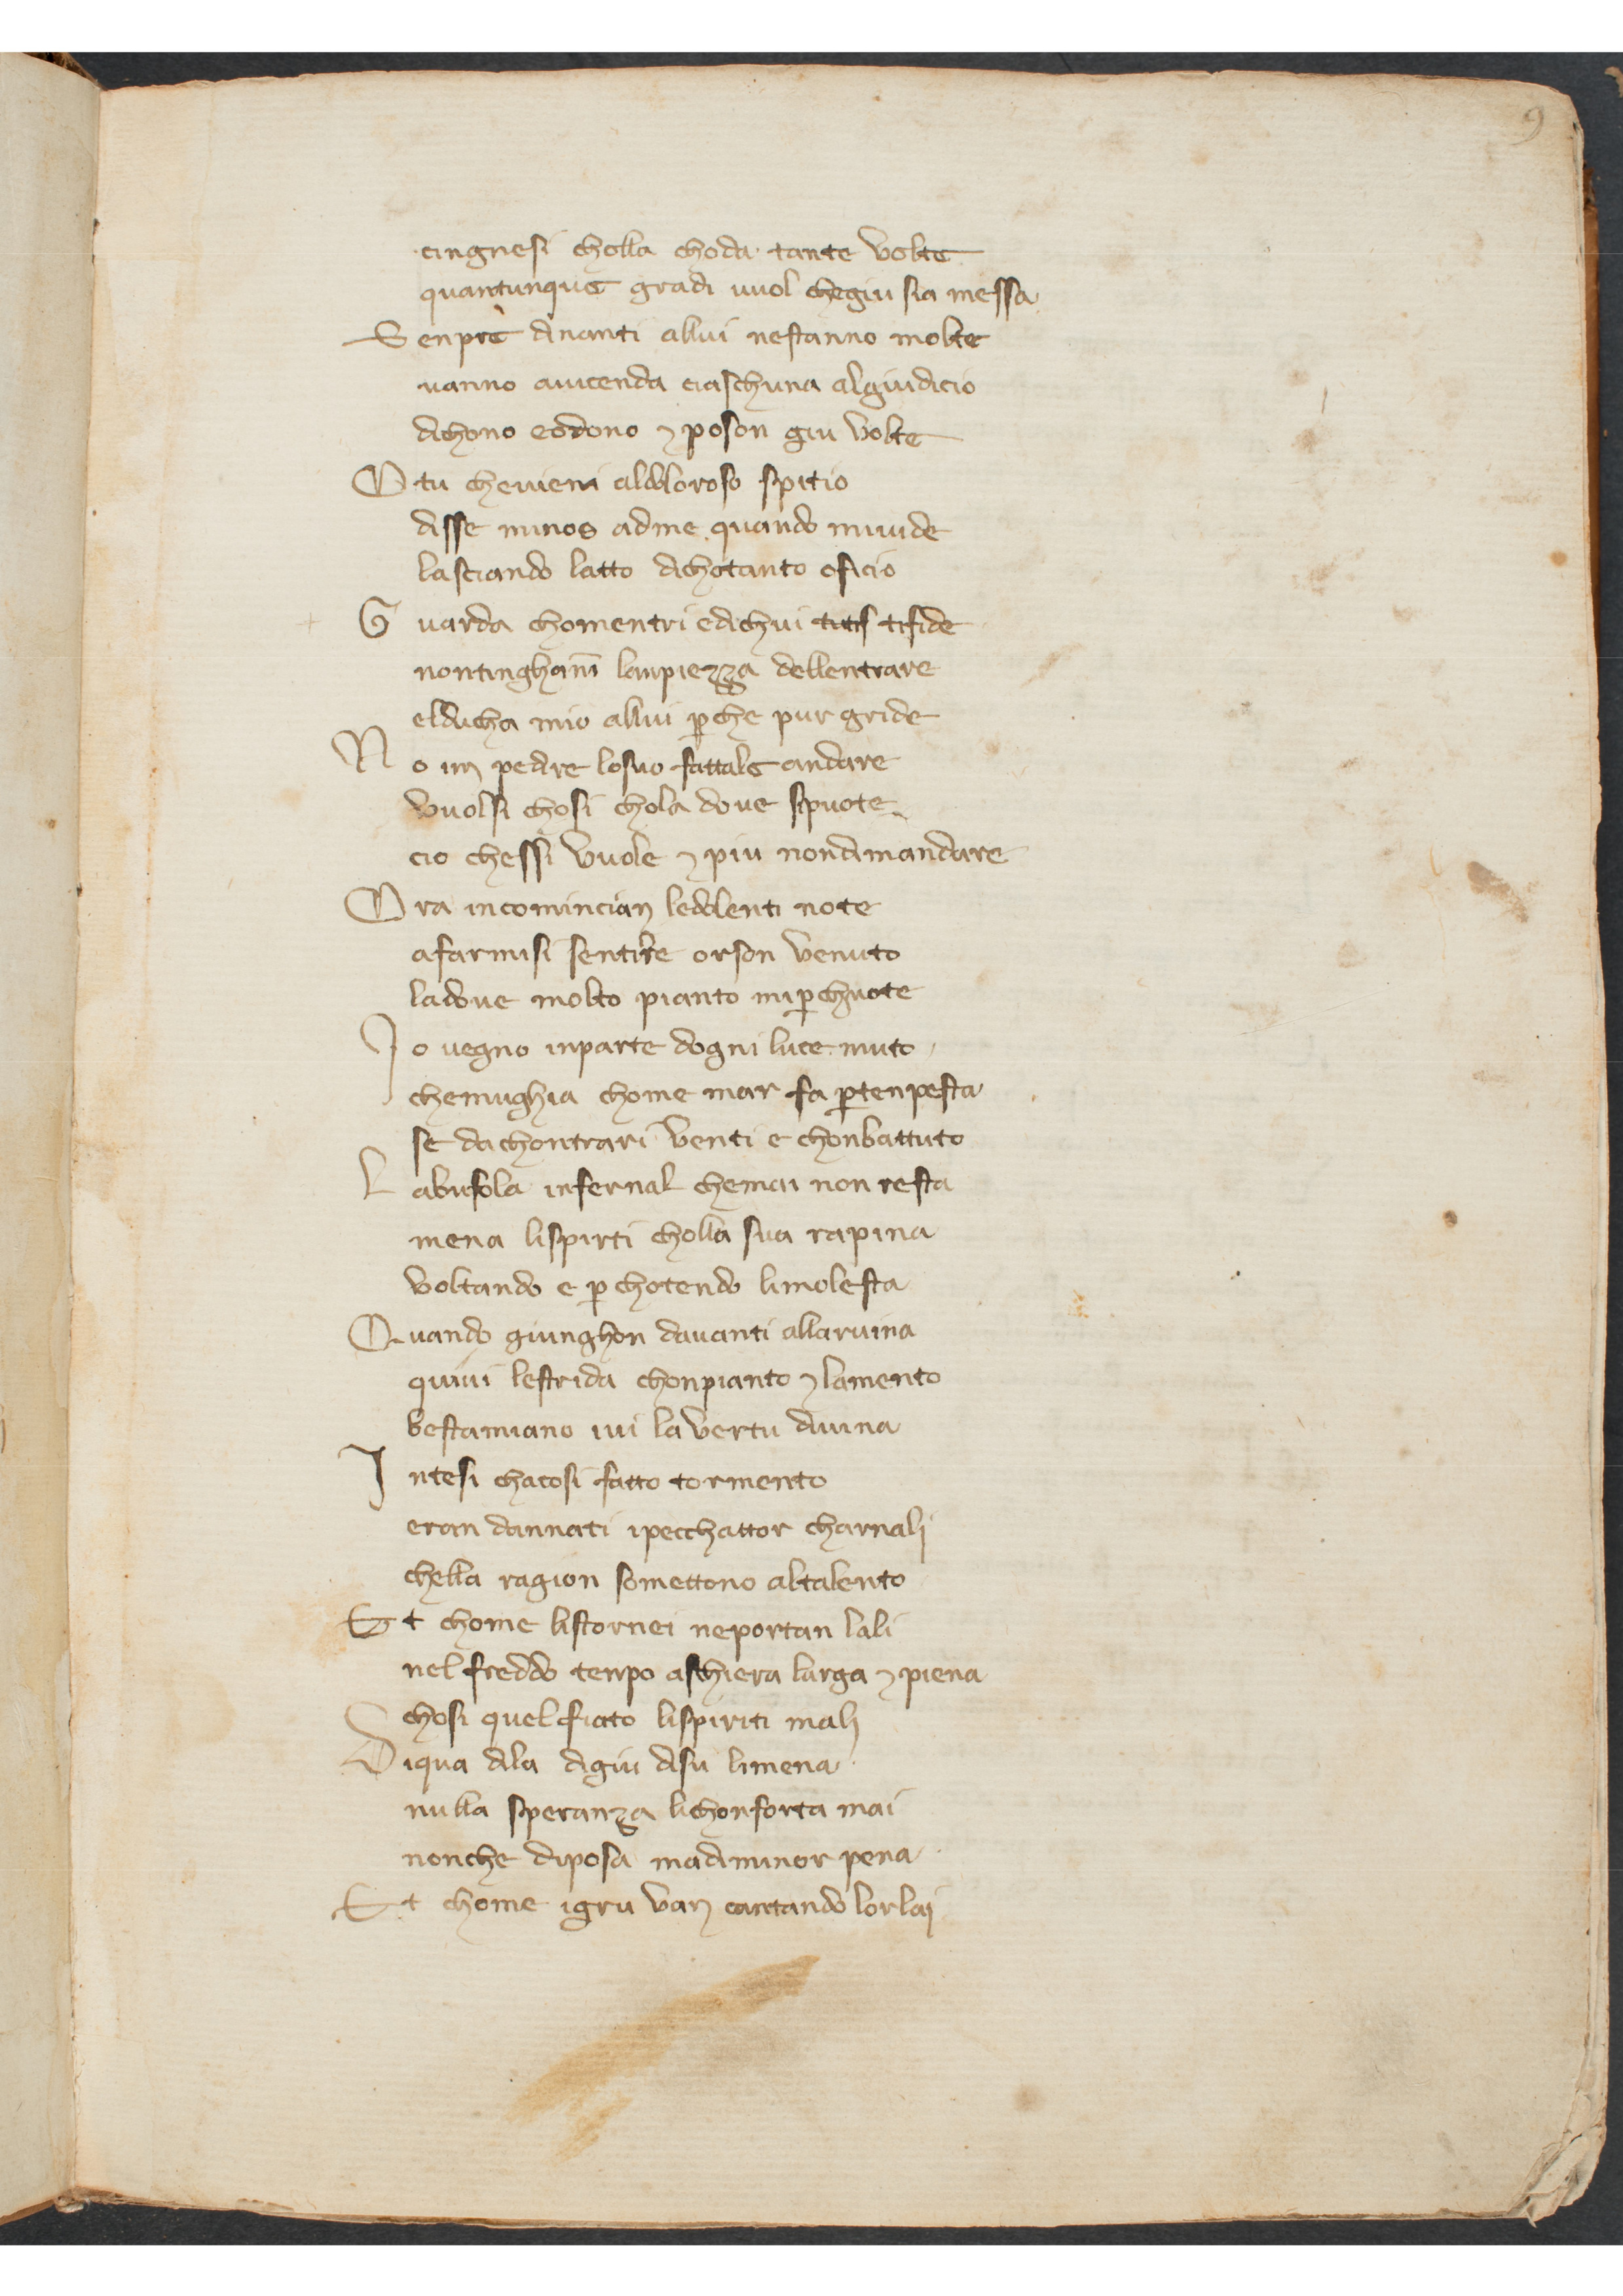 9
cingnesi cholla choda tante volte
quantunque gradi vuol chegiu sia messa
Senpre dinanti allui nestanno molte
vanno avicenda ciaschuna algiudicio
dichono eodono ⁊ poson giu volte
O tu chevieni aldoloroso spitio
disse minos adme quando mivide
lasciando latto dichotanto oficio
Guarda chomentri edichui tutif tifide
nontinghani lanpiezza dellentrare
elducha mio allui perche pur gride
No inpedire losuo fattale andare
vuolsi chosi chola dove sipuote
cio chessi vuole ⁊ piu nondimandare
Ora incomincian ledolenti note
afarmisi sentire orson venuto
ladove molto pianto miperchuote
Io vegno inparte dogni luce muto
chemughia chome mar fa pertenpesta
se dachontrari venti e chonbattuto
Labufola infernal chemai non resta
mena lispirti cholla sua rapina
voltando e perchotendo limolesta
Quando giunghon davanti allaruina
quivi lestrida chonpianto ⁊ lamento
bestamiano ivi la vertu divina
Intesi chacosi fatto tormento
eran dannati ipecchattor charnalj
chella ragion somettono altalento
Et chome listornei neportan lali
nel freddo tenpo aschiera larga ⁊ piena
chosi quel fiato lispiriti malj
Diqua dila digiu disu limena
nulla speranza lichonforta mai
nonche diposa madiminor pena
Et chome igru van cantando lorlaj